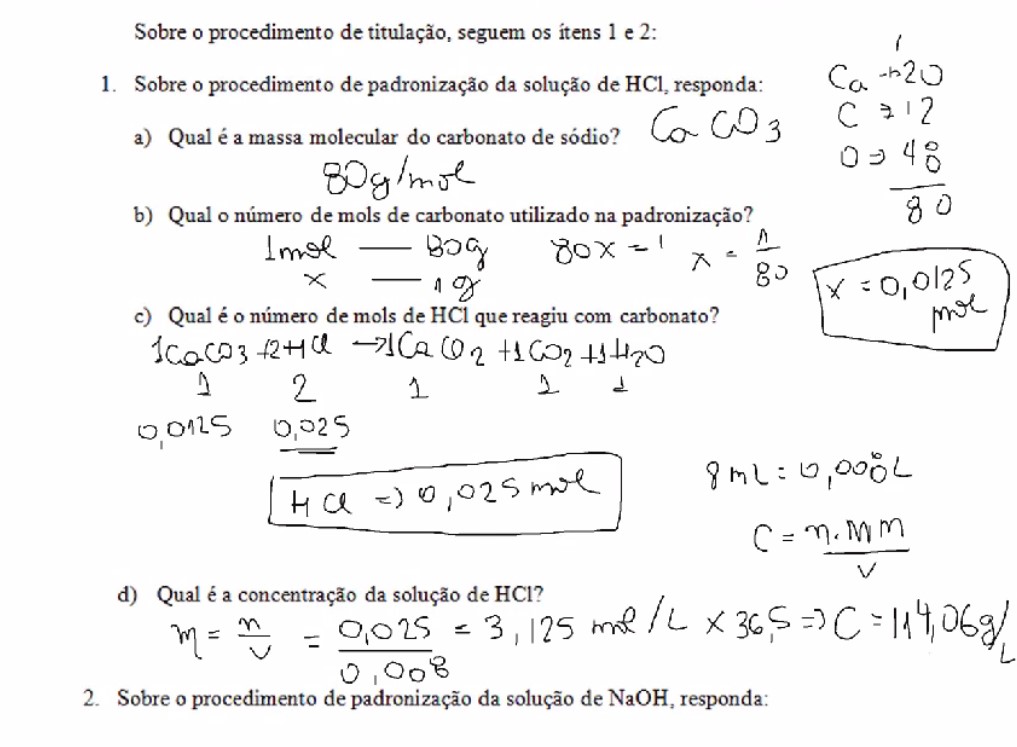 Sobre o procedimento de titulação, seguem os ítens 1 e 2:
1. Sobre o procedimento de padronização da solução de HCl, responda:
a) Qual é a massa molecular do carbonato de sódio? CaCO3
Ca → 20
C → 12
O → 48
80
80g/mol
b) Qual o número de mols de carbonato utilizado na padronização?
1mol — 80g
x — 1g
80x = 1
x = 1/80
x = 0,0125 mol
c) Qual é o número de mols de HCl que reagiu com carbonato?
1CaCO3 + 2HCl → 1CaCO2 + 1CO2 + 1H2O
1 2 1 1 1
0,0125 0,025
HCl => 0,025 mol
8mL = 0,008L
C = n.MM/V
d) Qual é a concentração da solução de HCl?
m = n/V = 0,025/0,008 = 3,125 mol/L x 36,5 => C = 114,06g/L
2. Sobre o procedimento de padronização da solução de NaOH, responda: